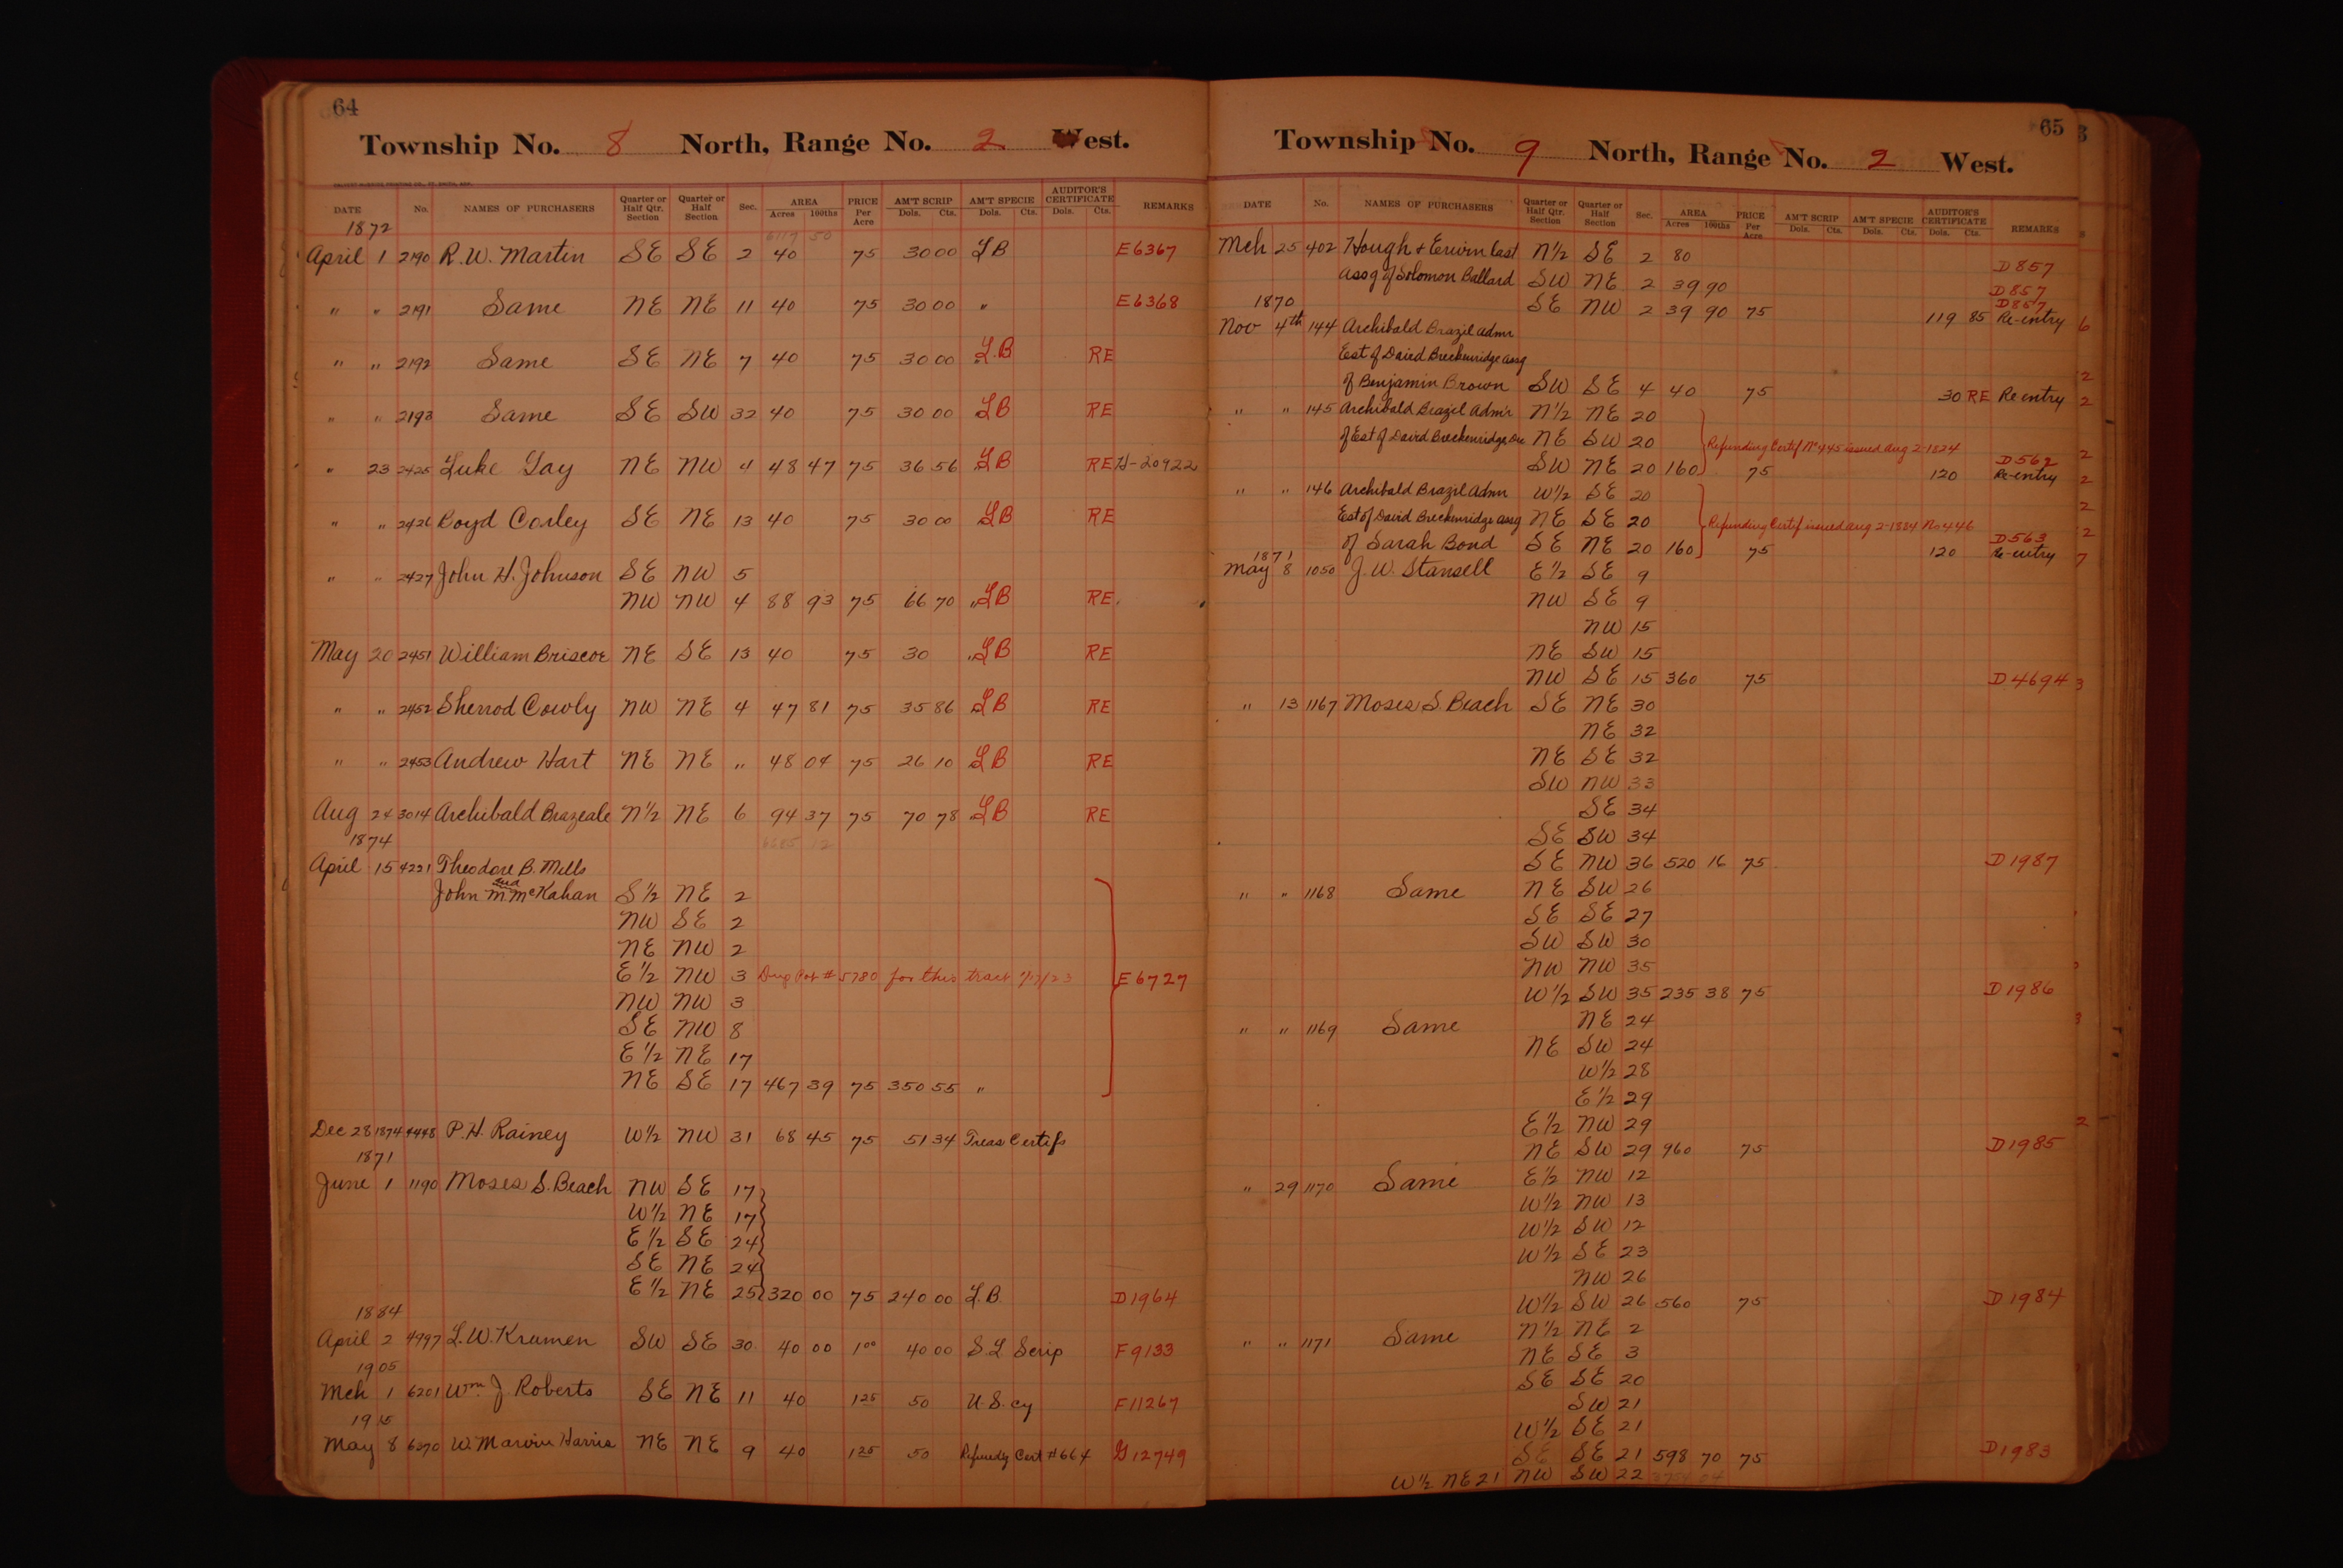 64
Township No. 8 North, Range No. 2 West.
DATE No. NAMES OF PURCHASERS Quarter or Half Qtr. Section Quarter or Half Section Sec. AREA Acres 100ths PRICE Per Acre AM'T SCRIP Dols. Cts. AM'T SPECIE Dols. Cts. AUDITOR'S CERTIFICATE Dols. Cts. REMARKS
1872
6119 50
April 1 2190 R.W. Martin SE SE 2 40 75 30 00 LB E6367
" " 2191 Same NE NE 11 40 75 30 00 " E6368
" " 2192 Same SE NE 7 40 75 30 00 L.B RE
" " 2193 Same SE SW 32 40 75 30 00 LB RE
" 23 2425 Luke Gay NE NW 4 48 47 75 36 56 LB RE H-20922
" " 2426 Boyd Corley SE NE 13 40 75 30 00 LB RE
" " 2427 John H. Johnson SE NW 5
NW NW 4 88 93 75 66 70 " LB RE.
May 20 2451 William Briscoe NE SE 13 40 75 30 " LB RE
" " 2452 Sherrod Cowly NW NE 4 47 81 75 35 86 LB RE
" " 2453 Andrew Hart NE NE " 48 04 75 26 10 LB RE
Aug 24 3014 Archibald Brazeale N½ NE 6 94 37 75 70 78 LB RE
1874
6685 12
April 15 4221 Theodore B. Mills
and
John M McKahan S½ NE 2
NW SE 2
NE NW 2
E½ NW 3 Dup Pat # 5780 for this tract 7/7/23 E6727
NW NW 3
SE NW 8
E½ NE 17
NE SE 17 467 39 75 350 55 "
Dec 28 1874 4448 P.H. Rainey W½ NW 31 68 45 75 51 34 Treas Certifs
1871
June 1 1190 Moses S. Beach NW SE 17
W½ NE 17
E½ SE 24
SE NE 24
E½ NE 25 320 00 75 240 00 L.B. D1964
1884
April 2 4997 L.W. Krumen SW SE 30 40 00 1 00 40 00 S.L Scrip F9133
1905
Mch 1 6201 Wm. J Roberts SE NE 11 40 1 25 50 U.S. cy F11267
1915
May 8 6370 W. Marvin Harris NE NE 9 40 1 25 50 Refundg Cert #664 G12749
65
Township No. 9 North, Range No. 2 West.
DATE No. NAMES OF PURCHASERS Quarter or Half Qtr. Section Quarter or Half Section Sec. AREA Acres 100ths PRICE Per Acre AM'T SCRIP Dols. Cts. AM'T SPECIE Dols. Cts. AUDITOR'S CERTIFICATE Dols. Cts. REMARKS
Mch 25 402 Hough & Erwin last N½ SE 2 80 D857
assg of Solomon Ballard SW NE 2 39 90 D857
1870 SE NW 2 39 90 75 119 85 D857 Re-entry
Nov 4th 144 Archibald Brazil admr
Est of David Breckenridge assg
of Benjamin Brown SW SE 4 40 75 30 RE Re entry
" " 145 Archibald Brazil Adm'r N½ NE 20
of Est of David Breckenridge Dec NE SW 20 Refunding Certif No 445 issued Aug 2-1824
SW NE 20 160 75 120 D562 Re-entry
" " 146 Archibald Brazil Admr W½ SE 20
Est of David Breckenridge assg NE SE 20 Refunding Certif issued Aug 2-1884 No 446
of Sarah Bond SE NE 20 160 75 120 D563 Re-entry
1871
May 8 1050 J.W. Stansell E½ SE 9
NW SE 9
NW 15
NE SW 15
NW SE 15 360 75 D4694
" 13 1167 Moses S. Beach SE NE 30
NE 32
NE SE 32
SW NW 33
SE 34
SE SW 34
SE NW 36 520 16 75 D1987
" " 1168 Same NE SW 26
SE SE 27
SW SW 30
NW NW 35
W½ SW 35 235 38 75 D1986
" " 1169 Same NE 24
NE SW 24
W½ 28
E½ 29
E½ NW 29
NE SW 29 960 75 D1985
" 29 1170 Same E½ NW 12
W½ NW 13
W½ SW 12
W½ SE 23
NW 26
W½ SW 26 560 75 D1984
" " 1171 Same N½ NE 2
NE SE 3
SE SE 20
SW 21
W½ SE 21
SE SE 21 598 70 75 D1983
W½ NE 21 NW SW 22